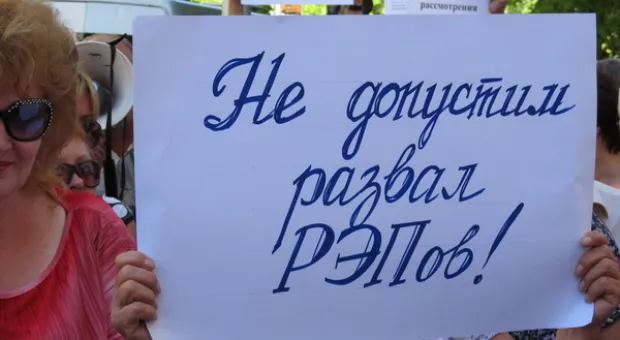 рассмотрения
Не допустим
развал
РЭПов!